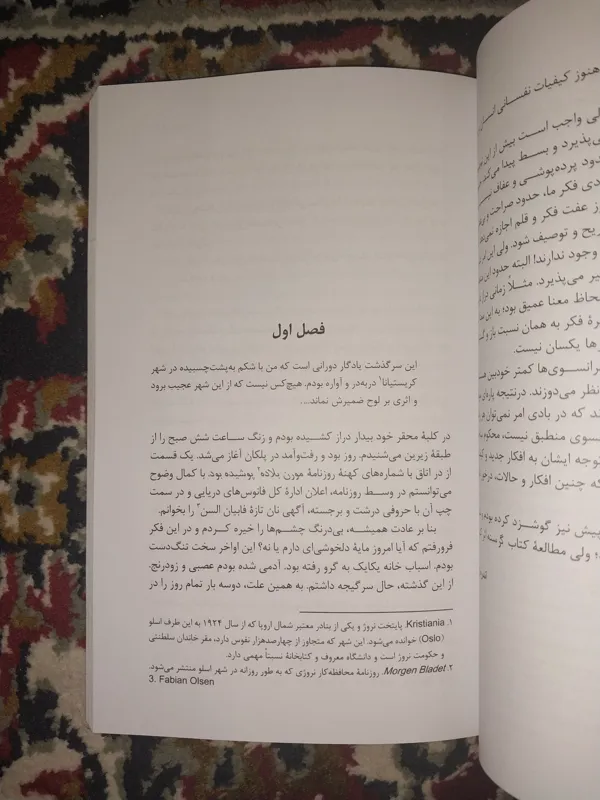 فصل اول
این سرگذشت یادگار دورانی است که من با شکم به‌پشت‌چسبیده در شهر
کریستیانا۱ دربه‌در و آواره بودم. هیچ‌کس نیست که از این شهر عجیب برود
و اثری بر لوح ضمیرش نماند...
در کلبهٔ محقر خود بیدار دراز کشیده بودم و زنگ ساعت شش صبح را از
طبقهٔ زیرین می‌شنیدم. روز بود و رفت‌وآمد در پلکان آغاز می‌شد. یک قسمت
از در اتاق با شماره‌های کهنهٔ روزنامهٔ مورن بلاده۲ پوشیده بود. با کمال وضوح
می‌توانستم در وسط روزنامه، اعلان ادارهٔ کل فانوس‌های دریایی و در سمت
چپ آن با حروفی درشت و برجسته، آگهی نان تازهٔ فابیان السن۳ را بخوانم.
بنا بر عادت همیشه، بی‌درنگ چشم‌ها را خیره کردم و در این فکر
فرورفتم که آیا امروز مایهٔ دلخوشی‌ای دارم یا نه؟ این اواخر سخت تنگ‌دست
بودم. اسباب خانه یکایک به گرو رفته بود. آدمی شده بودم عصبی و زودرنج.
از این گذشته، حال سرگیجه داشتم. به همین علت، دوسه بار تمام روز را در
۱. Kristiania. پایتخت نروژ و یکی از بنادر معتبر شمال اروپا که از سال ۱۹۲۴ به این طرف اسلو
(Oslo) خوانده می‌شود. این شهر که متجاوز از چهارصدهزار نفوس دارد، مقر خاندان سلطنتی
و حکومت نروژ است و دانشگاه معروف و کتابخانهٔ نسبتاً مهمی دارد.
۲. Morgen Bladet. روزنامهٔ محافظه‌کار نروژی که به طور روزانه در شهر اسلو منتشر می‌شود.
3. Fabian Olsen
هنوز کیفیات نفسانی
لی واجب است بیش از این
ی‌پذیرد و بسط پیدا می‌کند
دود پرده‌پوشی و عفاف
دی فکر ما، حدود صراحت و
ز عفت فکر و قلم اجازه
ریح و توصیف شود. ولی این امر
وجود ندارند! البته حدود این
یر می‌پذیرد. مثلاً زمانی
حاظ معنا عمیق بود؛ به این
رهٔ فکر به همان نسبت باز و
رها یکسان نیست.
رانسوی‌ها کمتر خودبین
نظر می‌دوزند. درنتیجه پاره‌ای
ند که در بادی امر نمی‌توان
سوی منطبق نیست، محکوم
توجه ایشان به افکار جدید و
که چنین افکار و حالات،
پیش نیز گوشزد کرده بودم
؛ ولی مطالعهٔ کتاب گرسنه